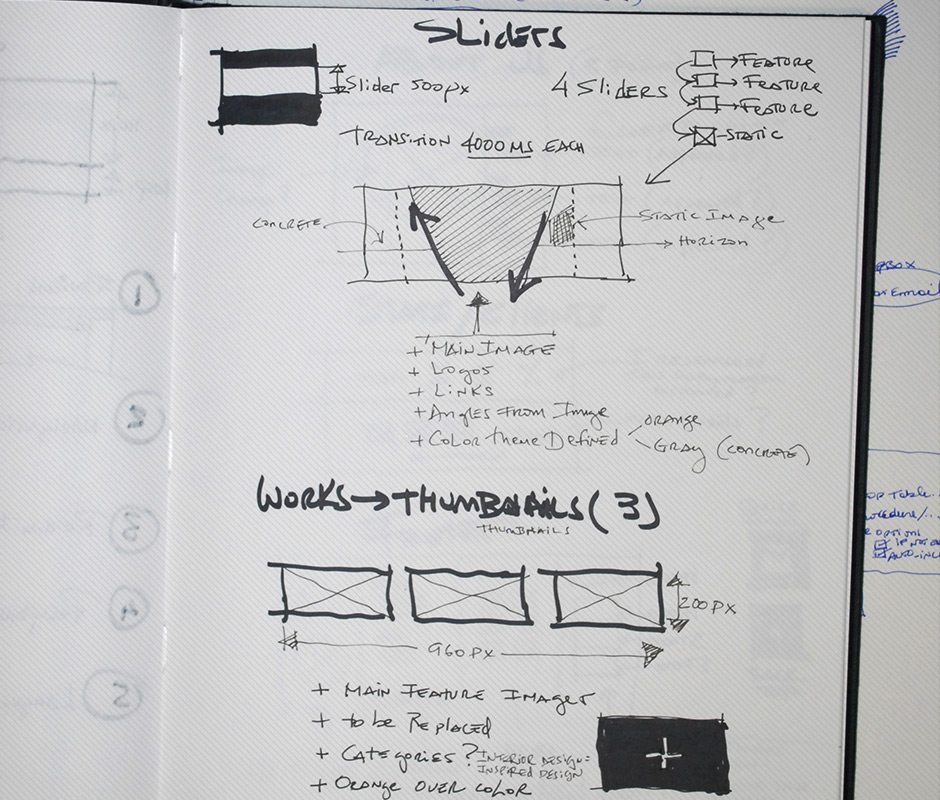 SLIDERS
Slider 500px
4 SLIDERS
FEATURE
FEATURE
FEATURE
STATIC
TRANSITION 4000 MS EACH
CONCRETE
STATIC IMAGE
HORIZON
+ MAIN IMAGE
+ LOGOS
+ LINKS
+ ANGLES FROM IMAGE
+ COLOR THEME DEFINED
ORANGE
GRAY (CONCRETE)
WORKS → THUMBNAILS (3)
THUMBNAILS
200 PX
960 PX
+ MAIN FEATURE IMAGES
+ to be REPLACED
+ CATEGORIES? INTERIOR DESIGN =
INSPIRED DESIGN
+ ORANGE OVER COLOR
1
2
3
4
5
Email
Table..